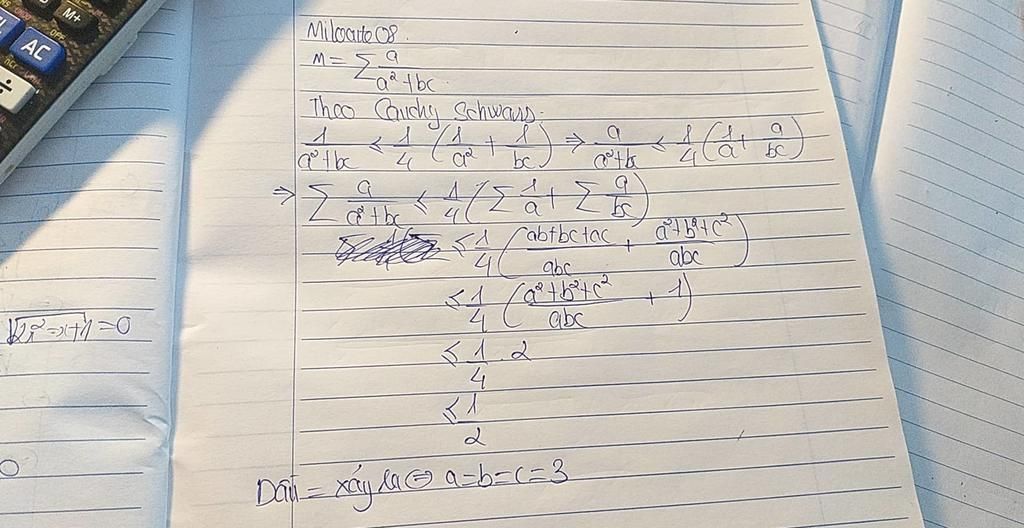 M+
AC
÷
√2x²-x+1=0
M = ∑ a/(a²+bc)
Theo Cauchy Schwass.
1/(a²+bc) ≤ 1/4 (1/a² + 1/bc) ⇒ a/(a²+bc) ≤ 1/4 (1/a + a/bc)
⇒ ∑ a/(a²+bc) ≤ 1/4 (∑ 1/a + ∑ a/bc)
≤ 1/4 ((ab+bc+ac)/abc + (a²+b²+c²)/abc)
≤ 1/4 ((a²+b²+c²)/abc + 1)
≤ 1/4 . 2
≤ 1/2
Dấu = xảy ra ⇔ a=b=c=3